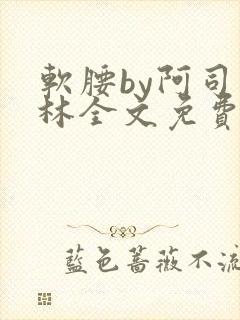 軟腰by阿司
林全文免費
藍色薔薇不流